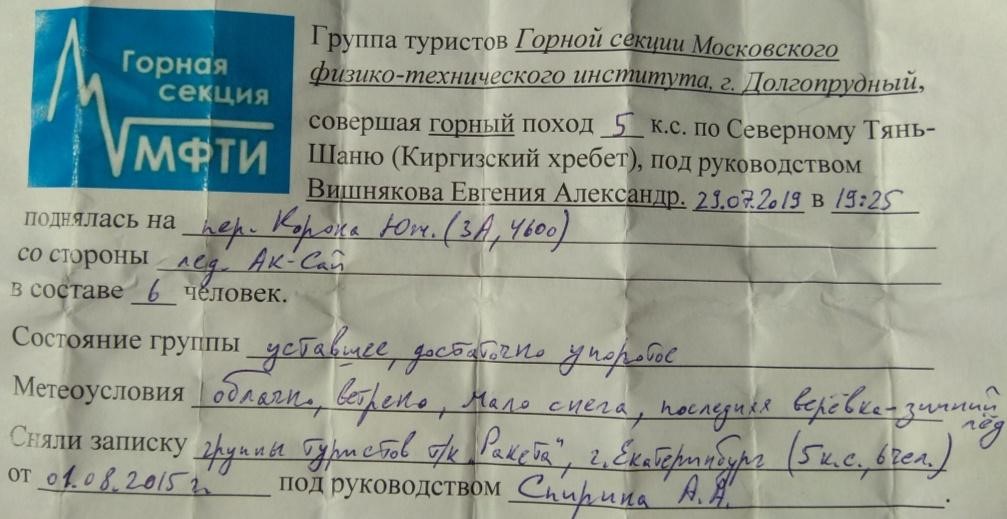 Горная
секция
МФТИ
Группа туристов Горной секции Московского
физико-технического института, г. Долгопрудный,
совершая горный поход 5 к.с. по Северному Тянь-
Шаню (Киргизский хребет), под руководством
Вишнякова Евгения Александр. 29.07.2019 в 19:25
поднялась на пер. Корона Юж. (3А, 4600)
со стороны лед. Ак-Сай
в составе 6 человек.
Состояние группы уставшее, достаточно упоротое
Метеоусловия облачно, ветрено, мало снега, последняя верёвка-зимний
лёд
Сняли записку группы туристов т/к "Ракета", г. Екатеринбург (5 к.с., 6 чел.)
от 01.08.2015 г. под руководством Спирина А.А.